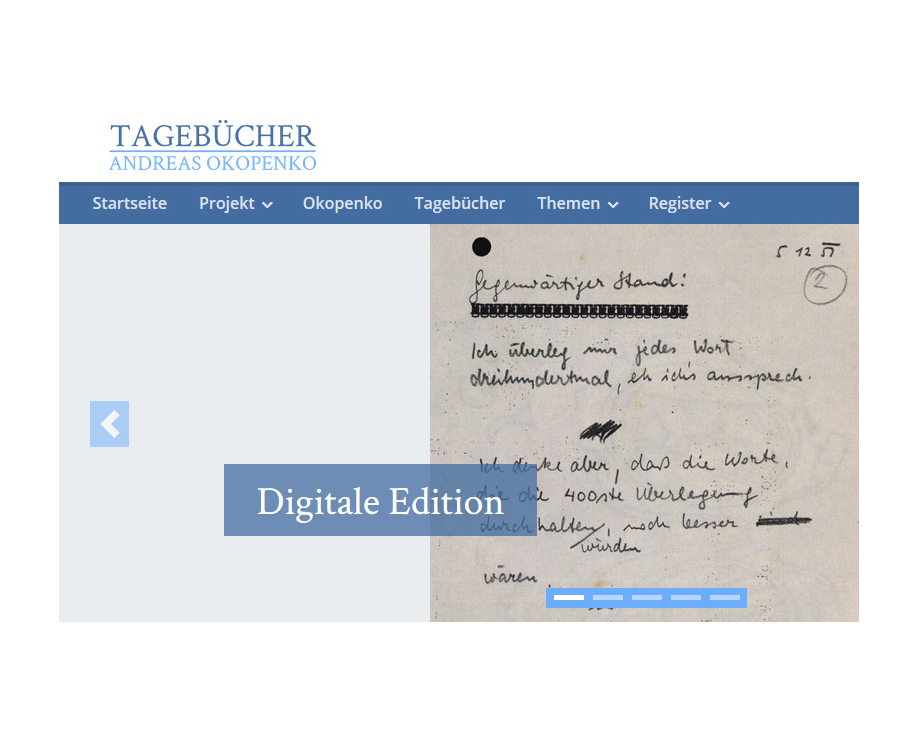 TAGEBÜCHER
ANDREAS OKOPENKO
Startseite Projekt Okopenko Tagebücher Themen Register
5 12 51
2
Gegenwärtiger Stand:
Ich überleg mir jedes Wort
dreihundertmal, eh ich's aussprech.
Ich denke aber, daß die Worte,
die die 400ste Überlegung
durchhalten, noch besser
würden
wären
Digitale Edition